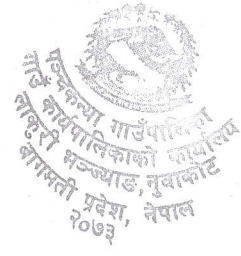 पञ्चकन्या गाउँपालिका
गाउँ कार्यपालिकाको कार्यालय
भञ्ज्याङ, नुवाकोट
बागमती प्रदेश, नेपाल
२०७३